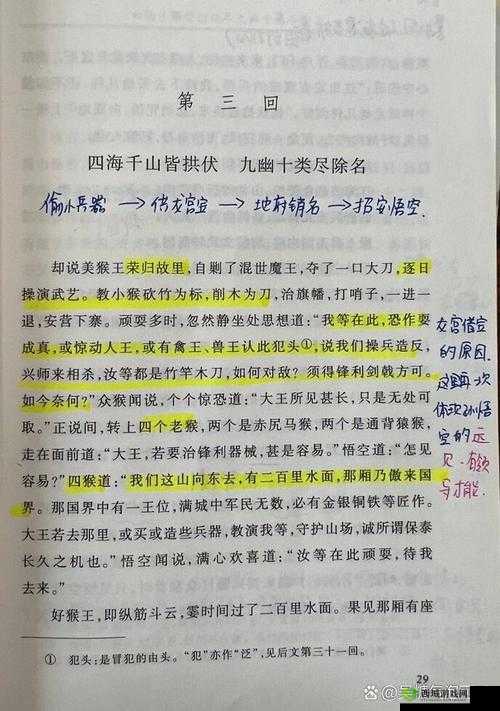 第三回
四海千山皆拱伏 九幽十类尽除名
偷小兵器→借龙宫宝→地府销名→招安悟空.
却说美猴王荣归故里,自剿了混世魔王,夺了一口大刀,逐日
操演武艺。教小猴砍竹为标,削木为刀,治旗幡,打哨子,一进一
退,安营下寨。顽耍多时,忽然静坐处思想道:“我等在此,恐作耍
成真,或惊动人王,或有禽王、兽王认此犯头①,说我们操兵造反,
兴师来相杀,汝等都是竹竿木刀,如何对敌?须得锋利剑戟方可。
如今奈何?”众猴闻说,个个惊恐道:“大王所见甚长,只是无处可
取。”正说间,转上四个老猴,两个是赤尻马猴,两个是通背猿猴,
走在面前道:“大王,若要治锋利器械,甚是容易。”悟空道:“怎见
容易?”四猴道:“我们这山向东去,有二百里水面,那厢乃傲来国
界。那国界中有一王位,满城中军民无数,必有金银铜铁等匠作。
大王若去那里,或买或造些兵器,教演我等,守护山场,诚所谓保泰
长久之机也。”悟空闻说,满心欢喜道:“汝等在此顽耍,待我
去来。”
好猴王,即纵筋斗云,霎时间过了二百里水面。果见那厢有座
龙宫借宝
的原因.
这里再次
体现孙悟
空的远
见、有领
导才能.
① 犯头:是冒犯的由头。“犯”亦作“泛”,见后文第三十一回。
29
西城游戏网